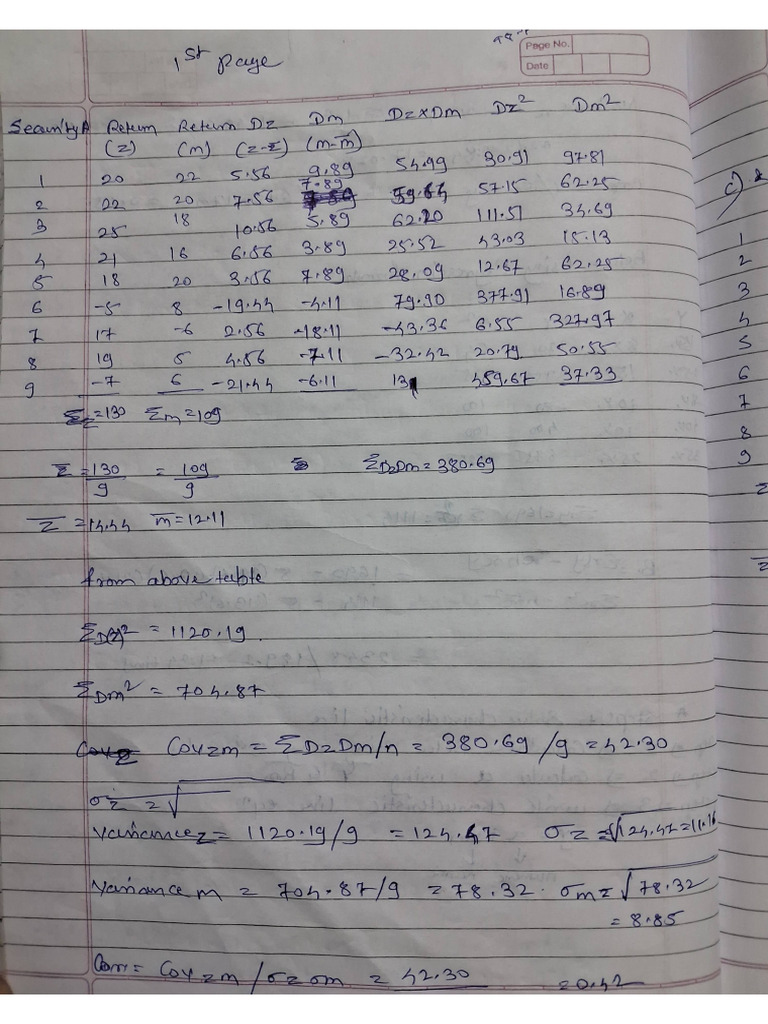 1st page
Page No.
Date
Security A Return Return Dz Dm Dz×Dm Dz² Dm²
(z) (m) (z-z̄) (m-m̄)
1 20 22 5.56 9.89 54.99 30.91 97.81
2 22 20 7.56 7.89 59.64 57.15 62.25
3 25 18 10.56 5.89 62.20 111.51 34.69
4 21 16 6.56 3.89 25.52 43.03 15.13
5 18 20 3.56 7.89 28.09 12.67 62.25
6 -5 8 -19.44 -4.11 79.90 377.91 16.89
7 17 -6 2.56 -18.11 -43.36 6.55 327.97
8 19 5 4.56 -7.11 -32.42 20.79 50.55
9 -7 6 -21.44 -6.11 131 459.67 37.33
Σz=130 Σm=109
z̄ = 130/9 = 109/9 ΣDzDm = 380.69
z̄ = 14.44 m̄ = 12.11
from above table
ΣD(z)² = 1120.19.
ΣDm² = 704.87
Covzm = ΣDzDm/n = 380.69/9 = 42.30
σz = √
Variance z = 1120.19/9 = 124.47 σz = √124.47 = 11.16
Variance m = 704.87/9 = 78.32. σm = √78.32
= 8.85
Corr = Cov zm / σz σm = 42.30 = 0.42
c)
1
2
3
4
5
6
7
8
9